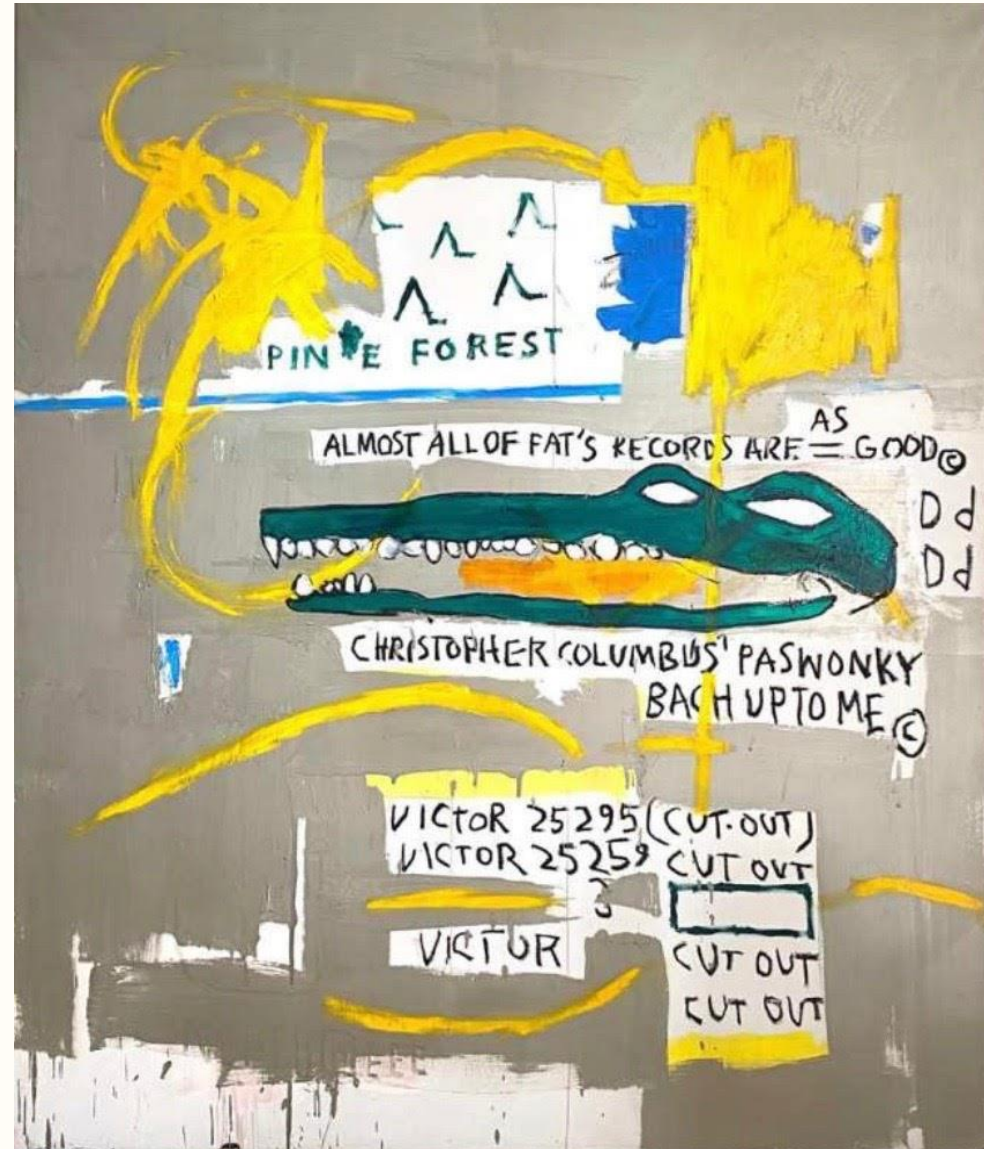 PIN E FOREST
AS
ALMOST ALL OF FAT'S RECORDS ARE = GOOD ©
D d
D d
CHRISTOPHER COLUMBUS' PASWONKY
BACH UP TO ME ©
VICTOR 25295 (CUT-OUT)
VICTOR 25259 CUT OUT
VICTOR
CUT OUT
CUT OUT